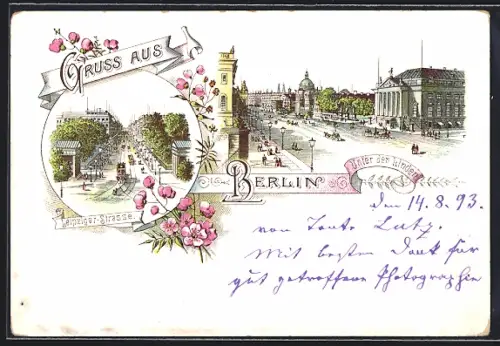 GRUSS AUS
Leipziger-Strasse.
BERLIN
Unter den Linden
den 14.8.93.
von Tante Lutz.
Mit besten Dank für
gut getroffene Photographie